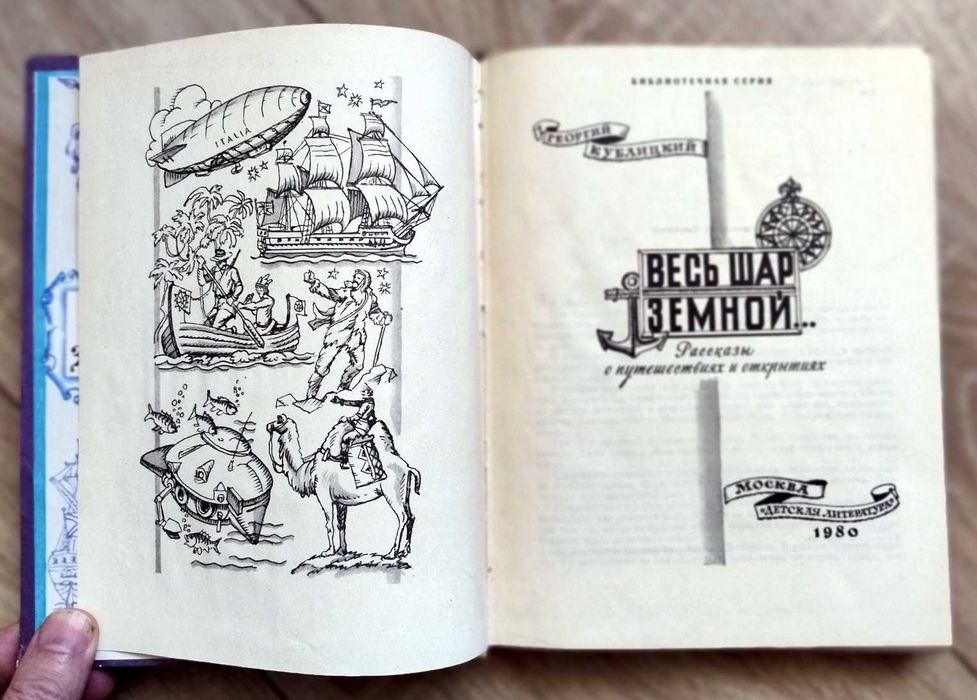 ITALIA
БИБЛИОТЕЧНАЯ СЕРИЯ
ГЕОРГИЙ
КУБЛИЦКИЙ
ВЕСЬ ШАР
ЗЕМНОЙ...
Рассказы
о путешествиях и открытиях
МОСКВА
"ДЕТСКАЯ ЛИТЕРАТУРА"
1980